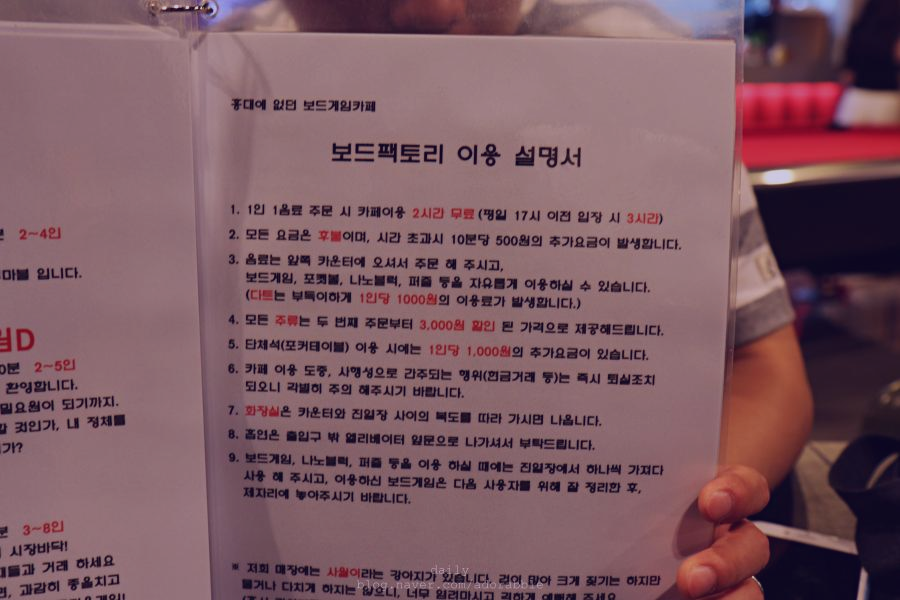 분 2~4인
루마블 입니다.
임D
0분 2~5인
환영합니다.
밀요원이 되기까지.
할 것인가, 내 정체를
인가?
분 3~8인
시장바닥!
대들과 거래 하세요
면, 과감히 종을치고
홍대에 없던 보드게임카페
보드팩토리 이용 설명서
1. 1인 1음료 주문 시 카페이용 2시간 무료 (평일 17시 이전 입장 시 3시간)
2. 모든 요금은 후불이며, 시간 초과시 10분당 500원의 추가요금이 발생합니다.
3. 음료는 앞쪽 카운터에 오셔서 주문 해 주시고,
보드게임, 포켓볼, 나노블럭, 퍼즐 등을 자유롭게 이용하실 수 있습니다.
(다트는 부득이하게 1인당 1000원의 이용료가 발생합니다.)
4. 모든 주류는 두 번째 주문부터 3,000원 할인 된 가격으로 제공해드립니다.
5. 단체석(포커테이블) 이용 시에는 1인당 1,000원의 추가요금이 있습니다.
6. 카페 이용 도중, 사행성으로 간주되는 행위(현금거래 등)는 즉시 퇴실조치
되오니 각별히 주의 해주시기 바랍니다.
7. 화장실은 카운터와 진열장 사이의 복도를 따라 가시면 나옵니다.
8. 흡연은 출입구 밖 엘리베이터 앞문으로 나가셔서 부탁드립니다.
9. 보드게임, 나노블럭, 퍼즐 등을 이용 하실 때에는 진열장에서 하나씩 가져다
사용 해 주시고, 이용하신 보드게임은 다음 사용자를 위해 잘 정리한 후,
제자리에 놓아주시기 바랍니다.
※ 저희 매장에는 사월이라는 강아지가 있습니다. 겁이 많아 크게 짖기는 하지만
물거나 다치게 하지는 않으니, 너무 염려마시고 귀하게 예뻐해 주세요
daily
blog.naver.com/adorabble